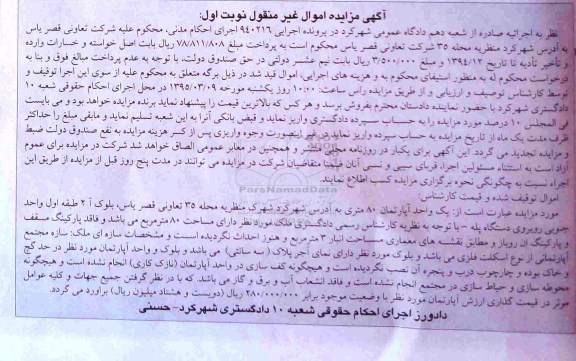 آگهی مزایده اموال غیر منقول نوبت اول:
نظر به اجرائیه صادره از شعبه دهم دادگاه عمومی شهرکرد در پرونده اجرایی ۹۴۰۲۱۶ اجرای احکام مدنی، محکوم علیه شرکت تعاونی قصر یاس
به آدرس شهرکرد منظریه محله ۳۵ شرکت تعاونی قصر یاس محکوم است به پرداخت مبلغ ۷۸/۸۱۱/۸۰۸ ریال بابت اصل خواسته و خسارات وارده
و تأخیر تأدیه تا تاریخ ۱۳۹۴/۱۲ و مبلغ ۳/۵۰۰/۰۰۰ ریال بابت نیم عشر دولتی در حق صندوق دولت، با توجه به عدم پرداخت مبالغ فوق و بنا به
درخواست محکوم له به منظور استیفای محکوم به و هزینه های اجرایی، اموال قید شد در ذیل برگه متعلق به محکوم علیه از سوی این اجرا توقیف و
توسط کارشناس توصیف و ارزیابی و از طریق مزایده راس ساعت: ۱۰:۰۰ روز یکشنبه مورخه ۱۳۹۵/۰۳/۰۹ در محل اجرای احکام حقوقی شعبه ۱۰
دادگستری شهرکرد با حضور نماینده دادستان محترم بفروش برسد و هر کس که بالاترین قیمت را پیشنهاد نماید برنده مزایده خواهد بود و می بایست
فی المجلس ۱۰ درصد مورد مزایده را به حساب سپرده دادگستری واریز نماید و قبض بانکی آنرا به این شعبه تسلیم نماید و مابقی مبلغ را حداکثر
ظرف مدت یک ماه از تاریخ مزایده به حساب سپرده واریز نماید در غیر اینصورت وجوه واریزی پس از کسر هزینه مزایده به نفع صندوق دولت ضبط
و مزایده تجدید می گردد. این آگهی برای یکبار در روزنامه محلی نشر و همچنین در معابر عمومی الصاق خواهد شد شرکت در مزایده برای عموم
آزاد است به استثناء مسئولین اجراء، قربای سببی و نسبی آنان ضمنا متقاضیان شرکت در مزایده می توانند در مدت پنج روز قبل از مزایده از طریق این
اجراء نسبت به چگونگی نحوه برگزاری مزایده کسب اطلاع نمایند.
اموال توقیف شده و قیمت کارشناس:
مورد مزایده عبارت است از: یک واحد آپارتمان ۸۰ متری به آدرس شهرکرد شهرک منظریه محله ۳۵ تعاونی قصر یاس، بلوک آ ۲ طبقه اول واحد
جنوبی روبروی دستگاه پله - با توجه به نظریه کارشناس رسمی دادگستری ملک مورد نظر دارای مساحت ۸۰ مترمربع می باشد و فاقد پارکینگ مسقف
و پارکینگ آن روباز و مطابق نقشه های معماری مساحت انبار ۳ مترمربع و هنوز احداث نگردیده است و مشخصات سازه ای ملک: سازه مجتمع
آپارتمانی از نوع اسکلت فلزی می باشد و بلوک مورد نظر دارای نمای آجر پلاک (سه سانتی) می باشد و بلوک و واحد آپارتمان مورد نظر در حد گچ
و خاک بوده و چارچوب درب و پنجره آن نصب نگردیده است و هیچگونه کف سازی در واحد آپارتمان (نازک کاری) انجام نشده است و هیچگونه
محوطه سازی و حیاط سازی در مجتمع انجام نشده است و فاقد انشعاب آب و برق و گاز می باشد. که با در نظر گرفتن جمیع جهات و کلیه عوامل
موثر در قیمت گذاری ارزش آپارتمان مورد نظر با وضعیت موجود برابر ۲۸۰/۰۰۰/۰۰۰ ریال (دویست و هشتاد میلیون ریال) برآورد می گردد.
دادورز اجرای احکام حقوقی شعبه ۱۰ دادگستری شهرکرد - حسنی
ParsNamadData